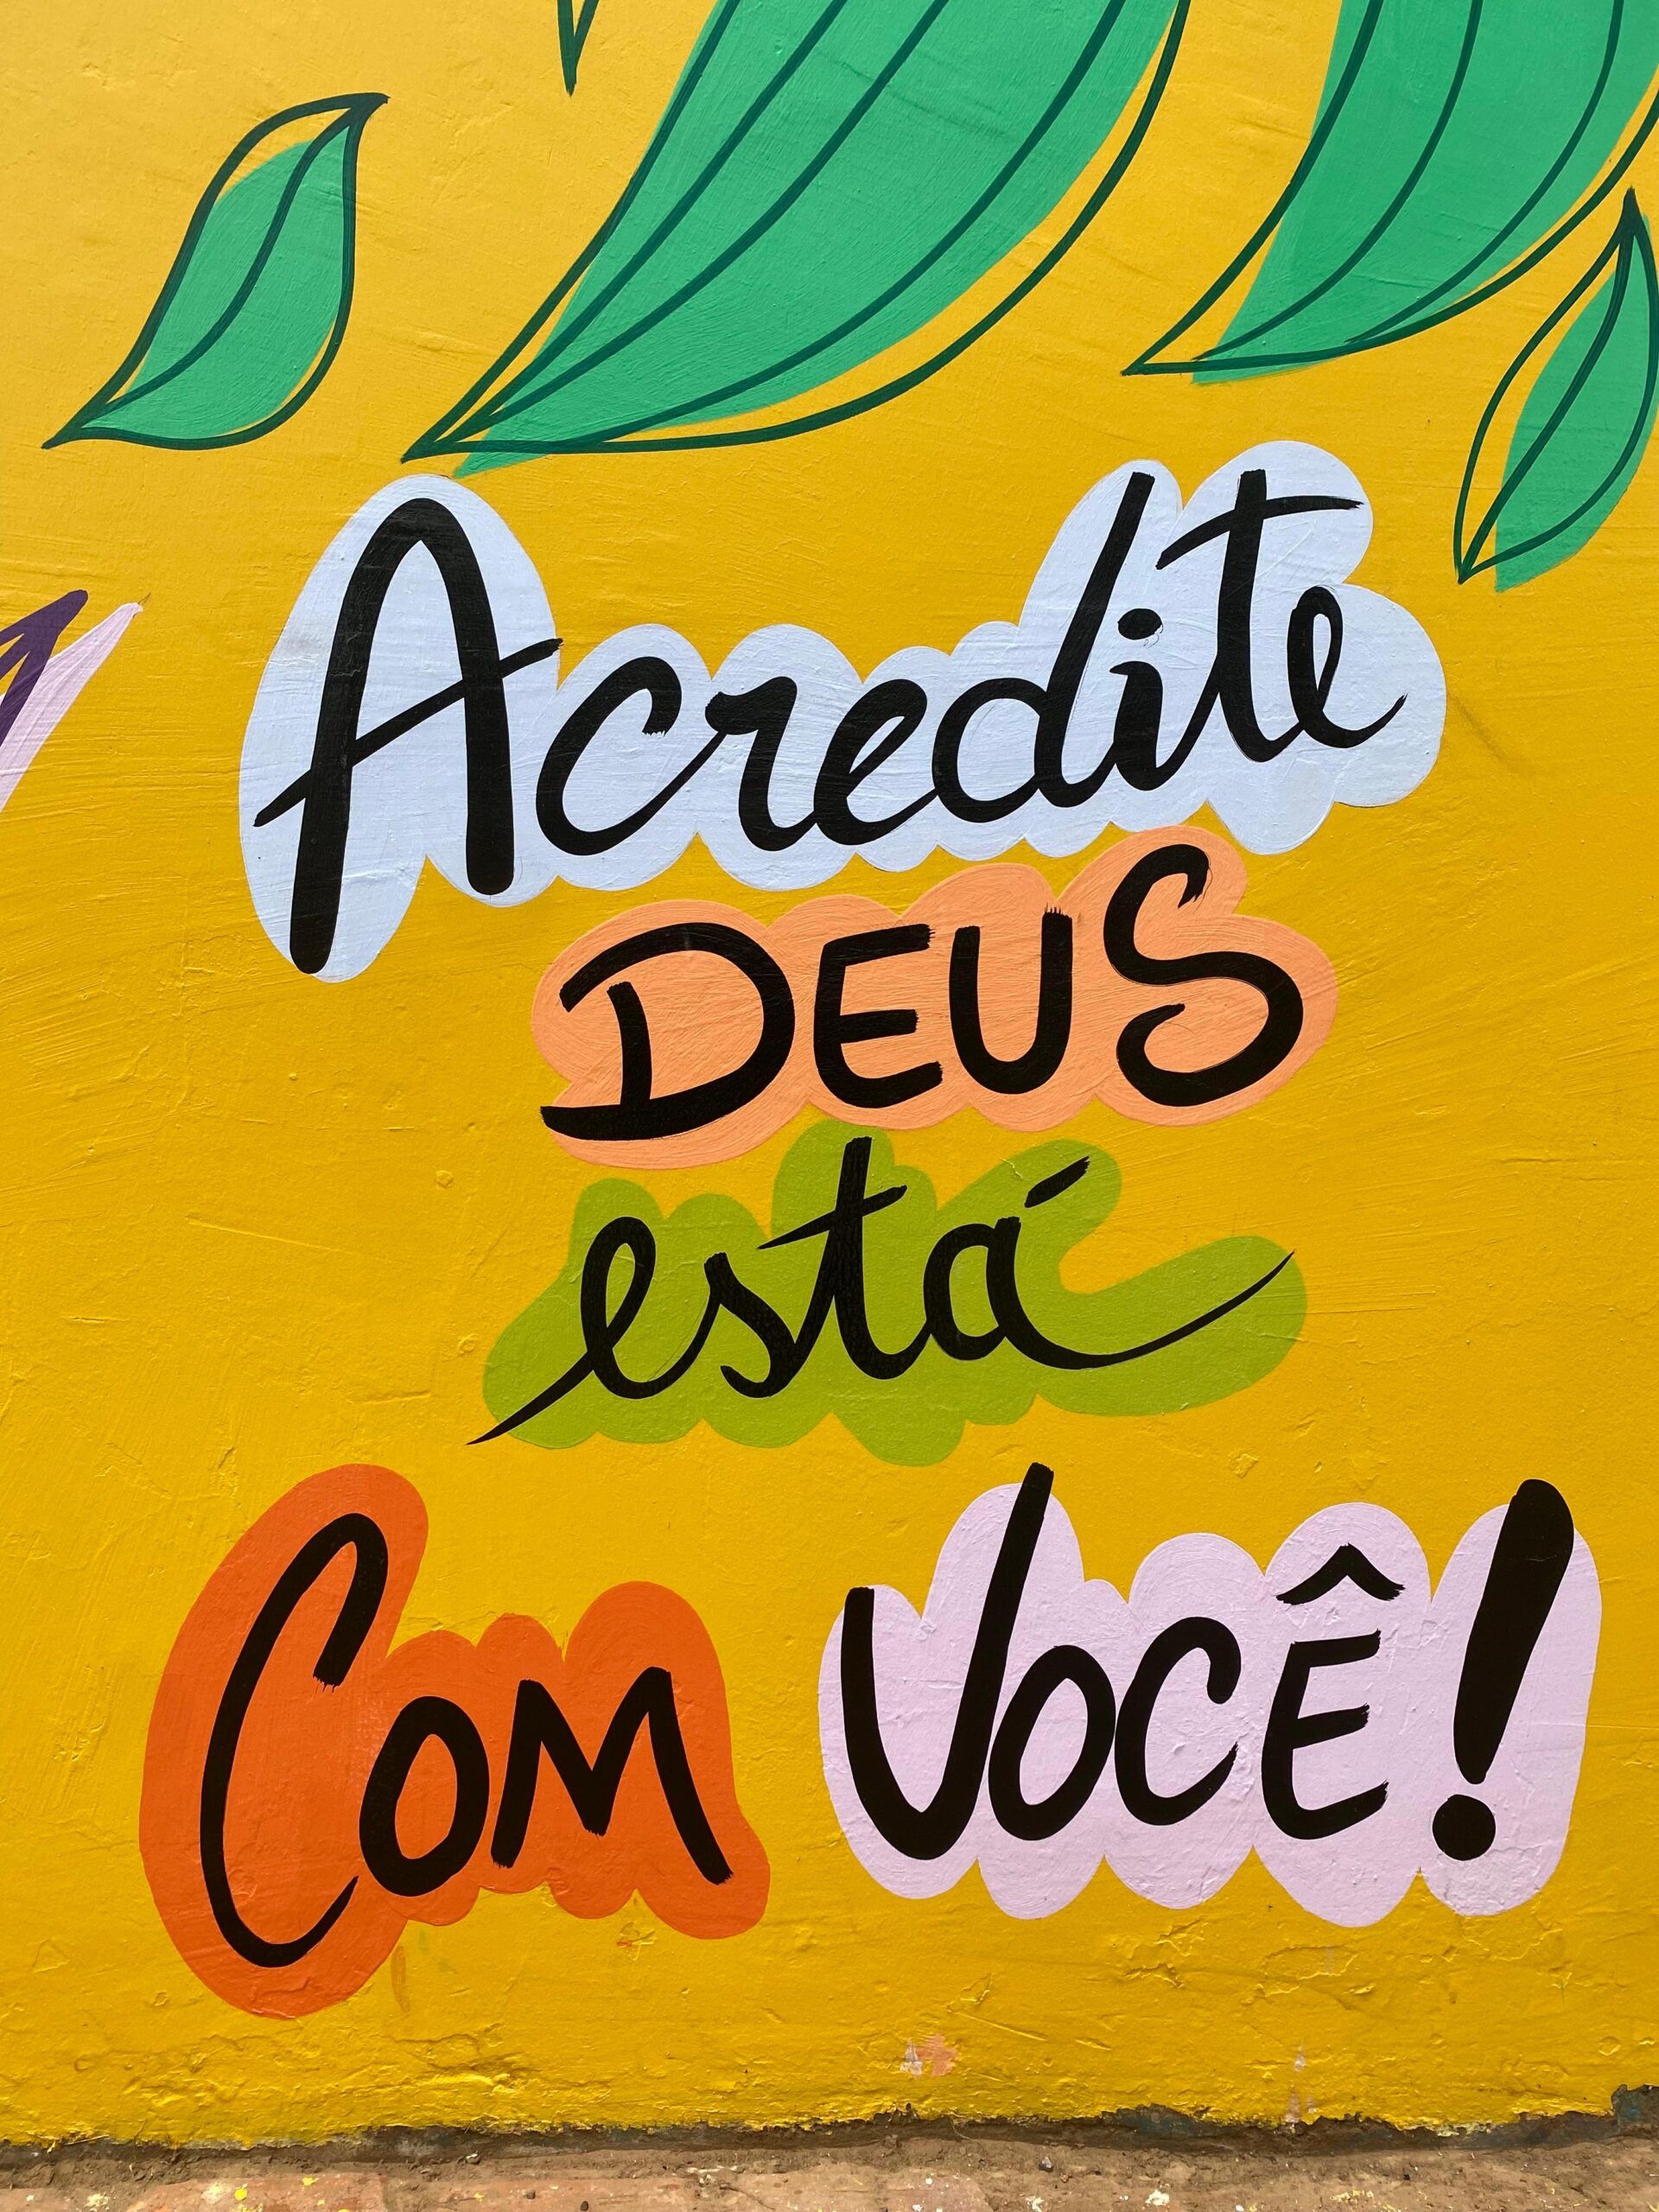 Acredite
DEUS
está
Com VOCÊ!